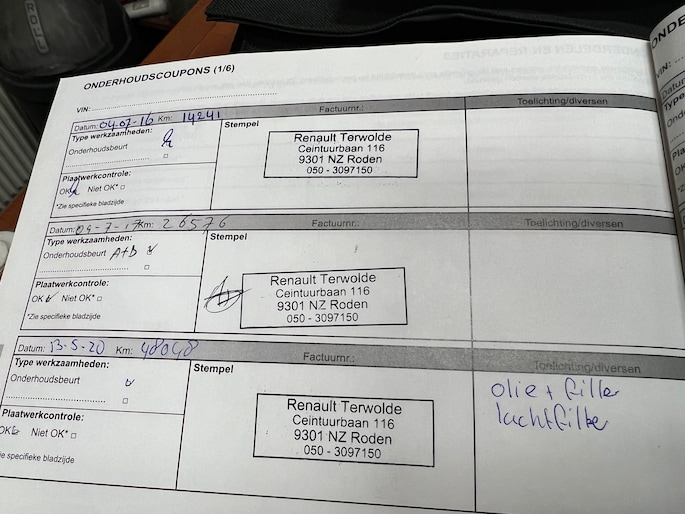 ONDERHOUDSCOUPONS (1/6)
VIN:
Datum: 04-07-16 Km: 14241 Factuurnr.: Toelichting/diversen
Type werkzaamheden:
Onderhoudsbeurt
Stempel
Renault Terwolde
Ceintuurbaan 116
9301 NZ Roden
050 - 3097150
Plaatwerkcontrole:
OK Niet OK*
*Zie specifieke bladzijde
Datum: 04-7-17 Km: 26576 Factuurnr.: Toelichting/diversen
Type werkzaamheden:
Onderhoudsbeurt A+B
Stempel
Renault Terwolde
Ceintuurbaan 116
9301 NZ Roden
050 - 3097150
Plaatwerkcontrole:
OK Niet OK*
*Zie specifieke bladzijde
Datum: 13-5-20 Km: 48048 Factuurnr.: Toelichting/diversen
Type werkzaamheden:
Onderhoudsbeurt
Stempel
Renault Terwolde
Ceintuurbaan 116
9301 NZ Roden
050 - 3097150
olie + filter
luchtfilter
Plaatwerkcontrole:
OK Niet OK*
ie specifieke bladzijde